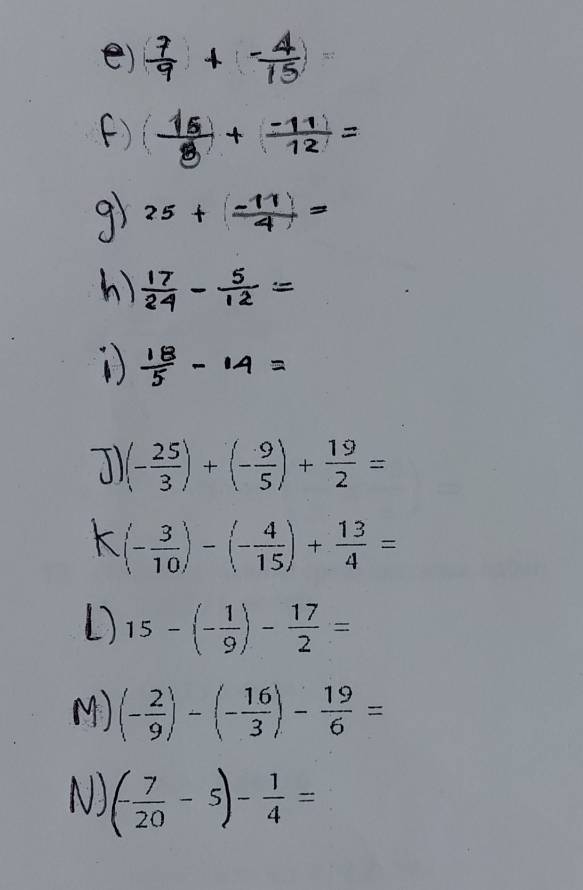 e) (7/9) + (-4/15) =
f) (15/8) + (-11/12) =
g) 25 + (-11/4) =
h) 17/24 - 5/12 =
i) 18/5 - 14 =
J) (-25/3) + (-9/5) + 19/2 =
K (-3/10) - (-4/15) + 13/4 =
L) 15 - (-1/9) - 17/2 =
M) (-2/9) - (-16/3) - 19/6 =
N) (-7/20 - 5) - 1/4 =